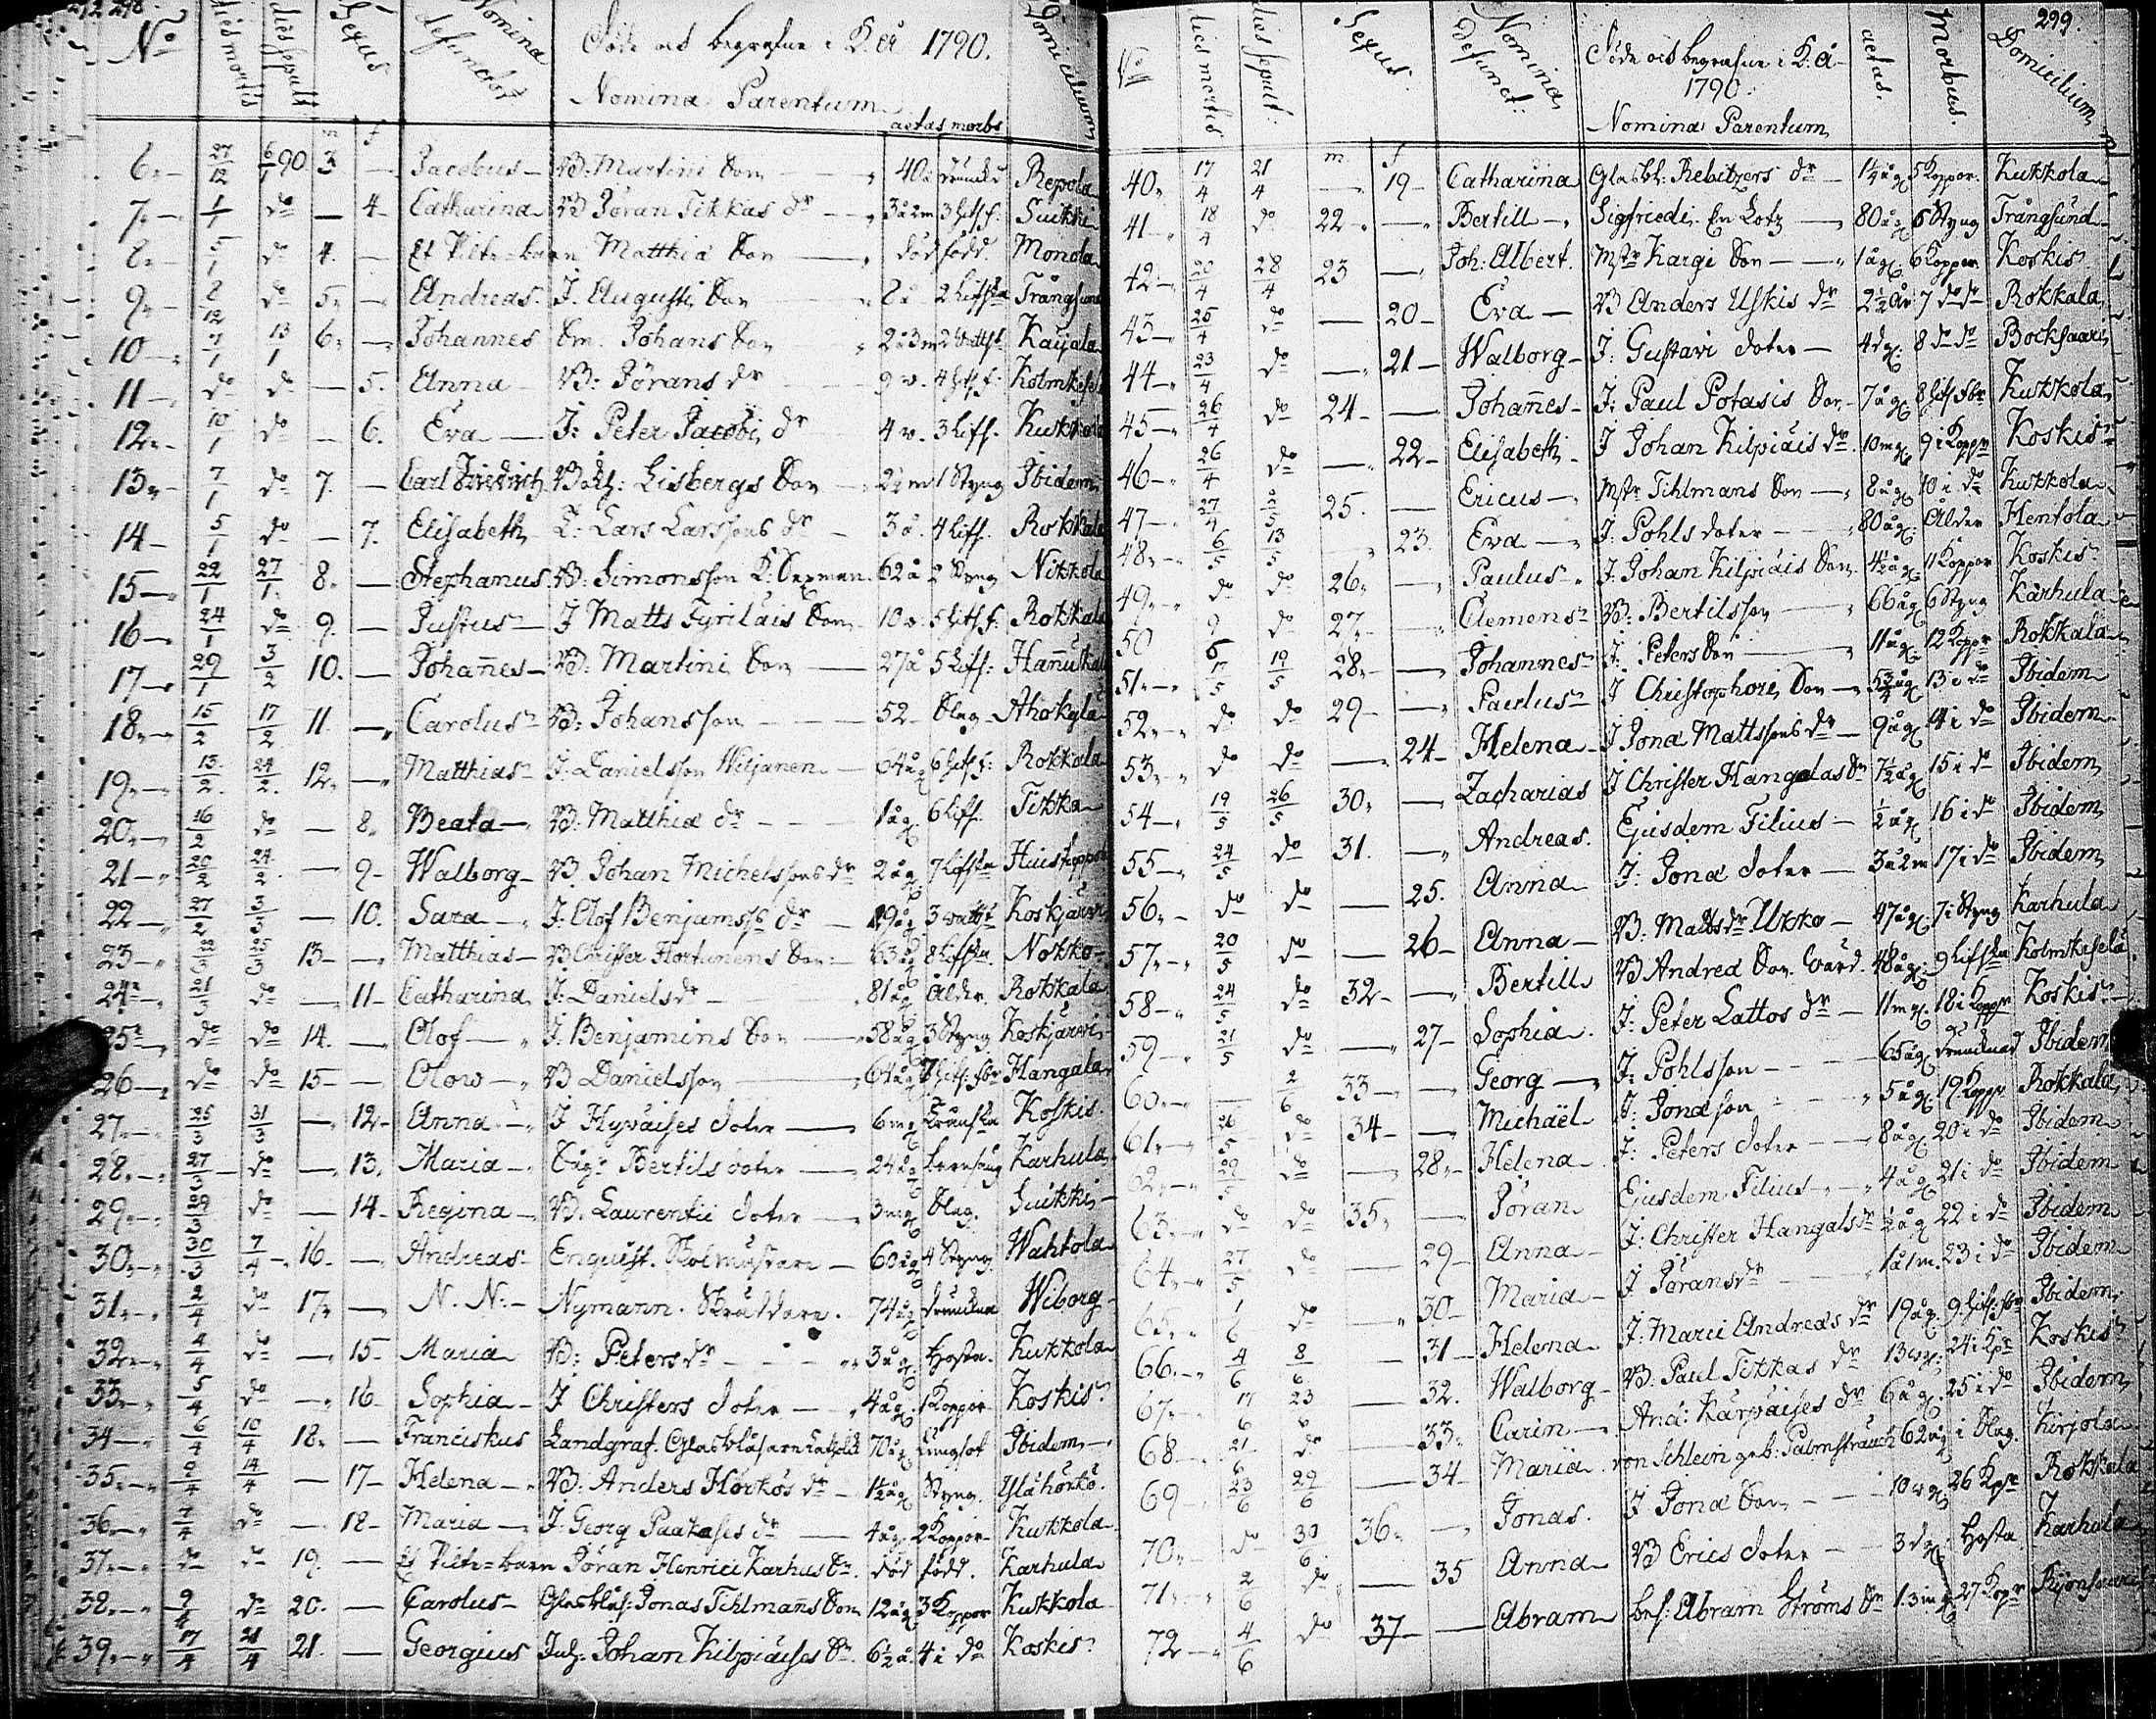 298.
No
dies mortis
dies sepult
Sexus
Nomina defunctor
Döde och begrafne i K. år 1790.
Nomina Parentum
aetas morbs
Domicilium
m f
6 27/12 6/1 90 3 — Jacobus W: Martini Son 40 å drunknd Repola
7 1/1 do — 4 Catharina W Jöran Tikkas dr 3 å 2 m 3 Hetsf: Suikki
8 5/1 do 4 — Et Pilte-barn Matthiæ Son död född Monola
9 2/12 do 5 — Andreas J. Augusti Son 8 å 2 Trångsund
10 7/1 13/1 6 — Johannes Sm. Johans Son 2 å 3 m Kaijala
11 do do — 5 Anna W: Jörans dr 9 v. 4 Hetsf: Kolmkese
12 10/1 do — 6 Eva J: Peter Jacobi dr 4 v. 3 Kukkola
13 7/1 do 7 — Carl Friedrich Lisbergs Son 2½ m 1 Styng Ibidem
14 5/1 do — 7 Elisabeth L: Lars Larssons dr 3 å. 4 Rokkala
15 22/1 27/1 8 — Stephanus W: Simonsson K: Sexman 62 å 2 Styng Nikkola
16 24/1 do 9 — Justus J Matts Tyriläis Son 10 v. 5 Hetsf: Rokkala
17 29/1 3/2 10 — Johañes W: Martini Son 27 å 5 Hañukal
18 15/2 17/2 11 — Carolus W: Johansson 52 Slag Ahokylä
19 13/2 24/2 12 — Matthias J: Danielsson Wiljanen 64 åg 6 Hetsf: Rokkala
20 16/2 do — 8 Beata W: Matthiæ dr 1 åg 6 Tikka
21 20/2 24/2 — 9 Walborg W Johan Michelssons dr 2 åg 7
22 27/2 3/3 — 10 Sara J. Olof Benjamss dr 29 åg 3 Koskjärvi
23 22/3 25/3 13 — Matthias W Christer Hortunens Son 63 åg 8 Nokko
24 21/3 do — 11 Catharina J: Daniels dr 81 åg Ålder. Rokkala
25 do do 14 — Olof J Benjamins Son 58 åg 3 Styng Koskjärvi
26 do do 15 — Olow W Danielsson 64 åg 7 Hets:sbr Hangala
27 25/3 31/3 — 12 Anna J Hyväises doter 6 mg Koskis
28 27/3 do — 13 Maria Bertils doter 24 åg Karhula
29 29/3 do — 14 Regina W. Laurentii doter 3 mg Slag. Suikki
30 30/3 7/4 16 — Andreas Enquist. Kolmästare 60 åg 4 Styng Wahtola
31 2/4 do 17 — N. N: Nymann. Skräddare. 74 åg drunknad Wiborg
32 4/4 do — 15 Maria W: Peters dr 3 åg Hosta. Kukkola
33 5/4 do — 16 Sophia J Christers doter 4 åg 1 Koppor Koskis
34 6/4 10/4 18 — Franciskus Landgraf. Glasblåsaren 70 åg Lungsot Ibidem
35 9/4 14/4 — 17 Helena W: Anders Hörkös dr 1½ åg Styng. Ylähörkö.
36 7/4 do — 18 Maria J. Georg Paakases dr 4 åg 2 Koppor Kukkola
37 do do 19 — Et Pilte-barn Jöran Henrici Karhus Sn. död född. Karhula
38 9/4 do 20 — Carolus Glasblås: Jonas Tihlmañs Son 12 åg 3 Koppor Kukkola
39 17/4 21/4 21 — Georgius Inh: Johan Kilpiäises Sn. 6½ å. 4 i do Koskis
299.
No
dies mortis
dies sepult:
Sexus.
Nomina defunct:
Döde och begrafne i K. år 1790.
Nomina Parentum
aetas.
Morbus.
Domicilium
m f
40 17/4 21/4 — 19 Catharina Glasbl: Rebitzers dr 1¼ åg 5 Koppor. Kukkola
41 18/4 do 22 — Bertill Sigfriedi En Lotz 80 åg 5 Styng Trångsund
42 20/4 28/4 23 — Joh: Albert. Mstr Kargi Son 1 åg. 6 Koppor Koskis
43 25/4 do — 20 Eva W Anders Uskis dr 2½ år 7 do do Rokkala
44 23/4 do — 21 Walborg J: Gustavi doter 4 dg. 8 do do Bocksaari
45 26/4 do 24 — Johañes J: Paul Potasis Son 7 åg 8 Hetssbr Kukkola
46 26/4 do — 22 Elisabeth J Johan Kilpiäis dr. 10 mg. 9 i Koppr Koskis
47 27/4 2/5 25 — Ericus Mstr Tihlmans Son 8 åg 10 i do Kukkola
48 6/5 13/5 — 23 Eva J: Pohls doter 80 åg. Ålder Hentola
49 do do 26 — Paulus J: Johan Kilpiäis Son 4½ åg 11 Koppor Koskis
50 9/5 do 27 — Clemens W: Bertilsson 66 åg 6 Styng Kärhula
51 17/5 19/5 28 — Johannes J: Peters Son 11 åg. 12 Koppr Rokkala
52 do do 29 — Paulus J Christophori Son 5¾ åg 13 i do Ibidem
53 do do — 24 Helena J Jona Mattssons dr 9 åg 14 i do Ibidem
54 19/5 26/5 30 — Zacharias J Christer Hangalas Sn 7½ åg 15 i do Ibidem
55 24/5 do 31 — Andreas. Ejusdem Filius ½ åg 16 i do Ibidem
56 do do — 25 Anna J: Jona doter 3 å 2 m 17 i do Ibidem
57 20/5 do — 26 Anna W: Matts dr Ukko 47 åg. 7 i Styng Karhula
58 24/5 do 32 — Bertill W Andreæ Son 48 åg. 9 Kolmkeselä
59 21/5 do — 27 Sophia. J: Peter Lattos dr 11 mg. 18 i Koppr Koskis
60 — 2/6 33 — Georg J: Pohlsson 65 åg drunknad Ibidem
61 26/5 do 34 — Michaël J: Jonason 5 åg 19 Koppr Rokkala
62 29/5 do — 28 Helena J: Peters doter 8 åg 20 i do Ibidem
63 do do 35 — Jöran Ejusdem Filius 4 åg 21 i do Ibidem
64 27/5 do — 29 Anna J: Christer Hangals dr ½ åg 22 i do Ibidem
65 1/6 do — 30 Maria J Jörans dr 1 å 1 m. 23 i do Ibidem
66 4/6 8/6 — 31 Helena J: Marci Andreas dr 19 åg. 9 Hets:sbr Ibidem
67 17/6 23/6 — 32 Walborg W: Paul Tikkas dr 13 vg. 24 i Kpr Koskis
68 21/6 do — 33 Carin And: Kärpäises dr 6 åg. 25 i do Ibidem
69 23/6 29/6 — 34 Maria von Schlein geb: Palmstrauch 62 åg i Slag. Kirjola
70 do 30/6 36 — Jonas. J Jona Son 10 vg 26 Kpr Rokkala
71 2/6 do — 35 Anna W Erics doter 3 dg Hosta Karhula
72 4/6 do 37 — Abram bes: Abram Ströms Sn 1. 3 mg. 27 Kopr